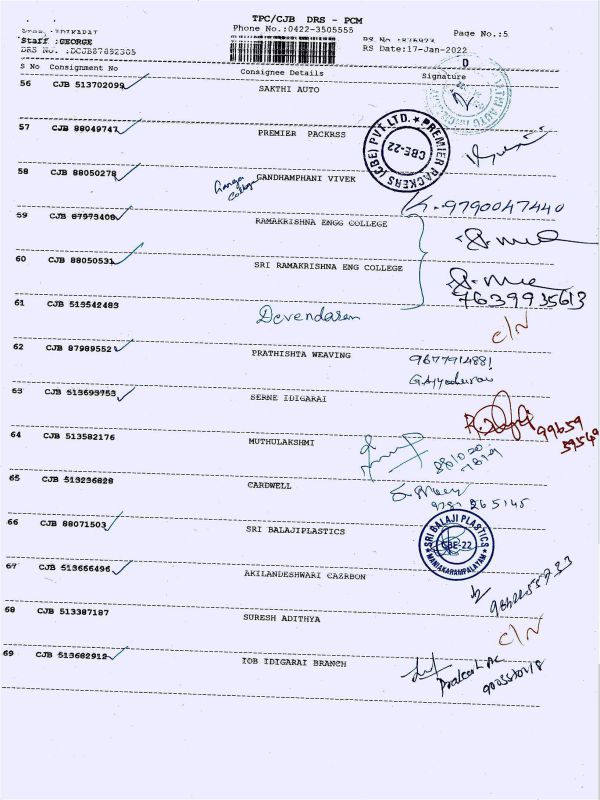 TPC/CJB DRS - PCM
Phone No.:0422-3505555 Page No.:5
Staff :GEORGE
DRS No. :DCJB87892305 RS Date:17-Jan-2022
S No Consignment No Consignee Details Signature
D
56 CJB 513702099 SAKTHI AUTO
57 CJB 88049747 PREMIER PACKRSS
PREMIER PACKERS (CBE) PVT.LTD. CBE-22
58 CJB 88050278 GANDHAMPHANI VIVEK
Ganga College
K. 9790047440
59 CJB 87973408 RAMAKRISHNA ENGG COLLEGE
60 CJB 88050531 SRI RAMAKRISHNA ENG COLLEGE
7639935613
61 CJB 513542483 Devendaren C/N
62 CJB 87989552 PRATHISHTA WEAVING 9677914881
63 CJB 513693753 SERNE IDIGARAI
64 CJB 513582176 MUTHULAKSHMI
65 CJB 513236828 CARDWELL
66 CJB 88071503 SRI BALAJIPLASTICS
SRI BALAJI PLASTICS CBE-22 MANIAKARAMPALAYAM
67 CJB 513666496 AKILANDESHWARI CAZRBON
68 CJB 513387187 SURESH ADITHYA C/N
69 CJB 513682912 IOB IDIGARAI BRANCH